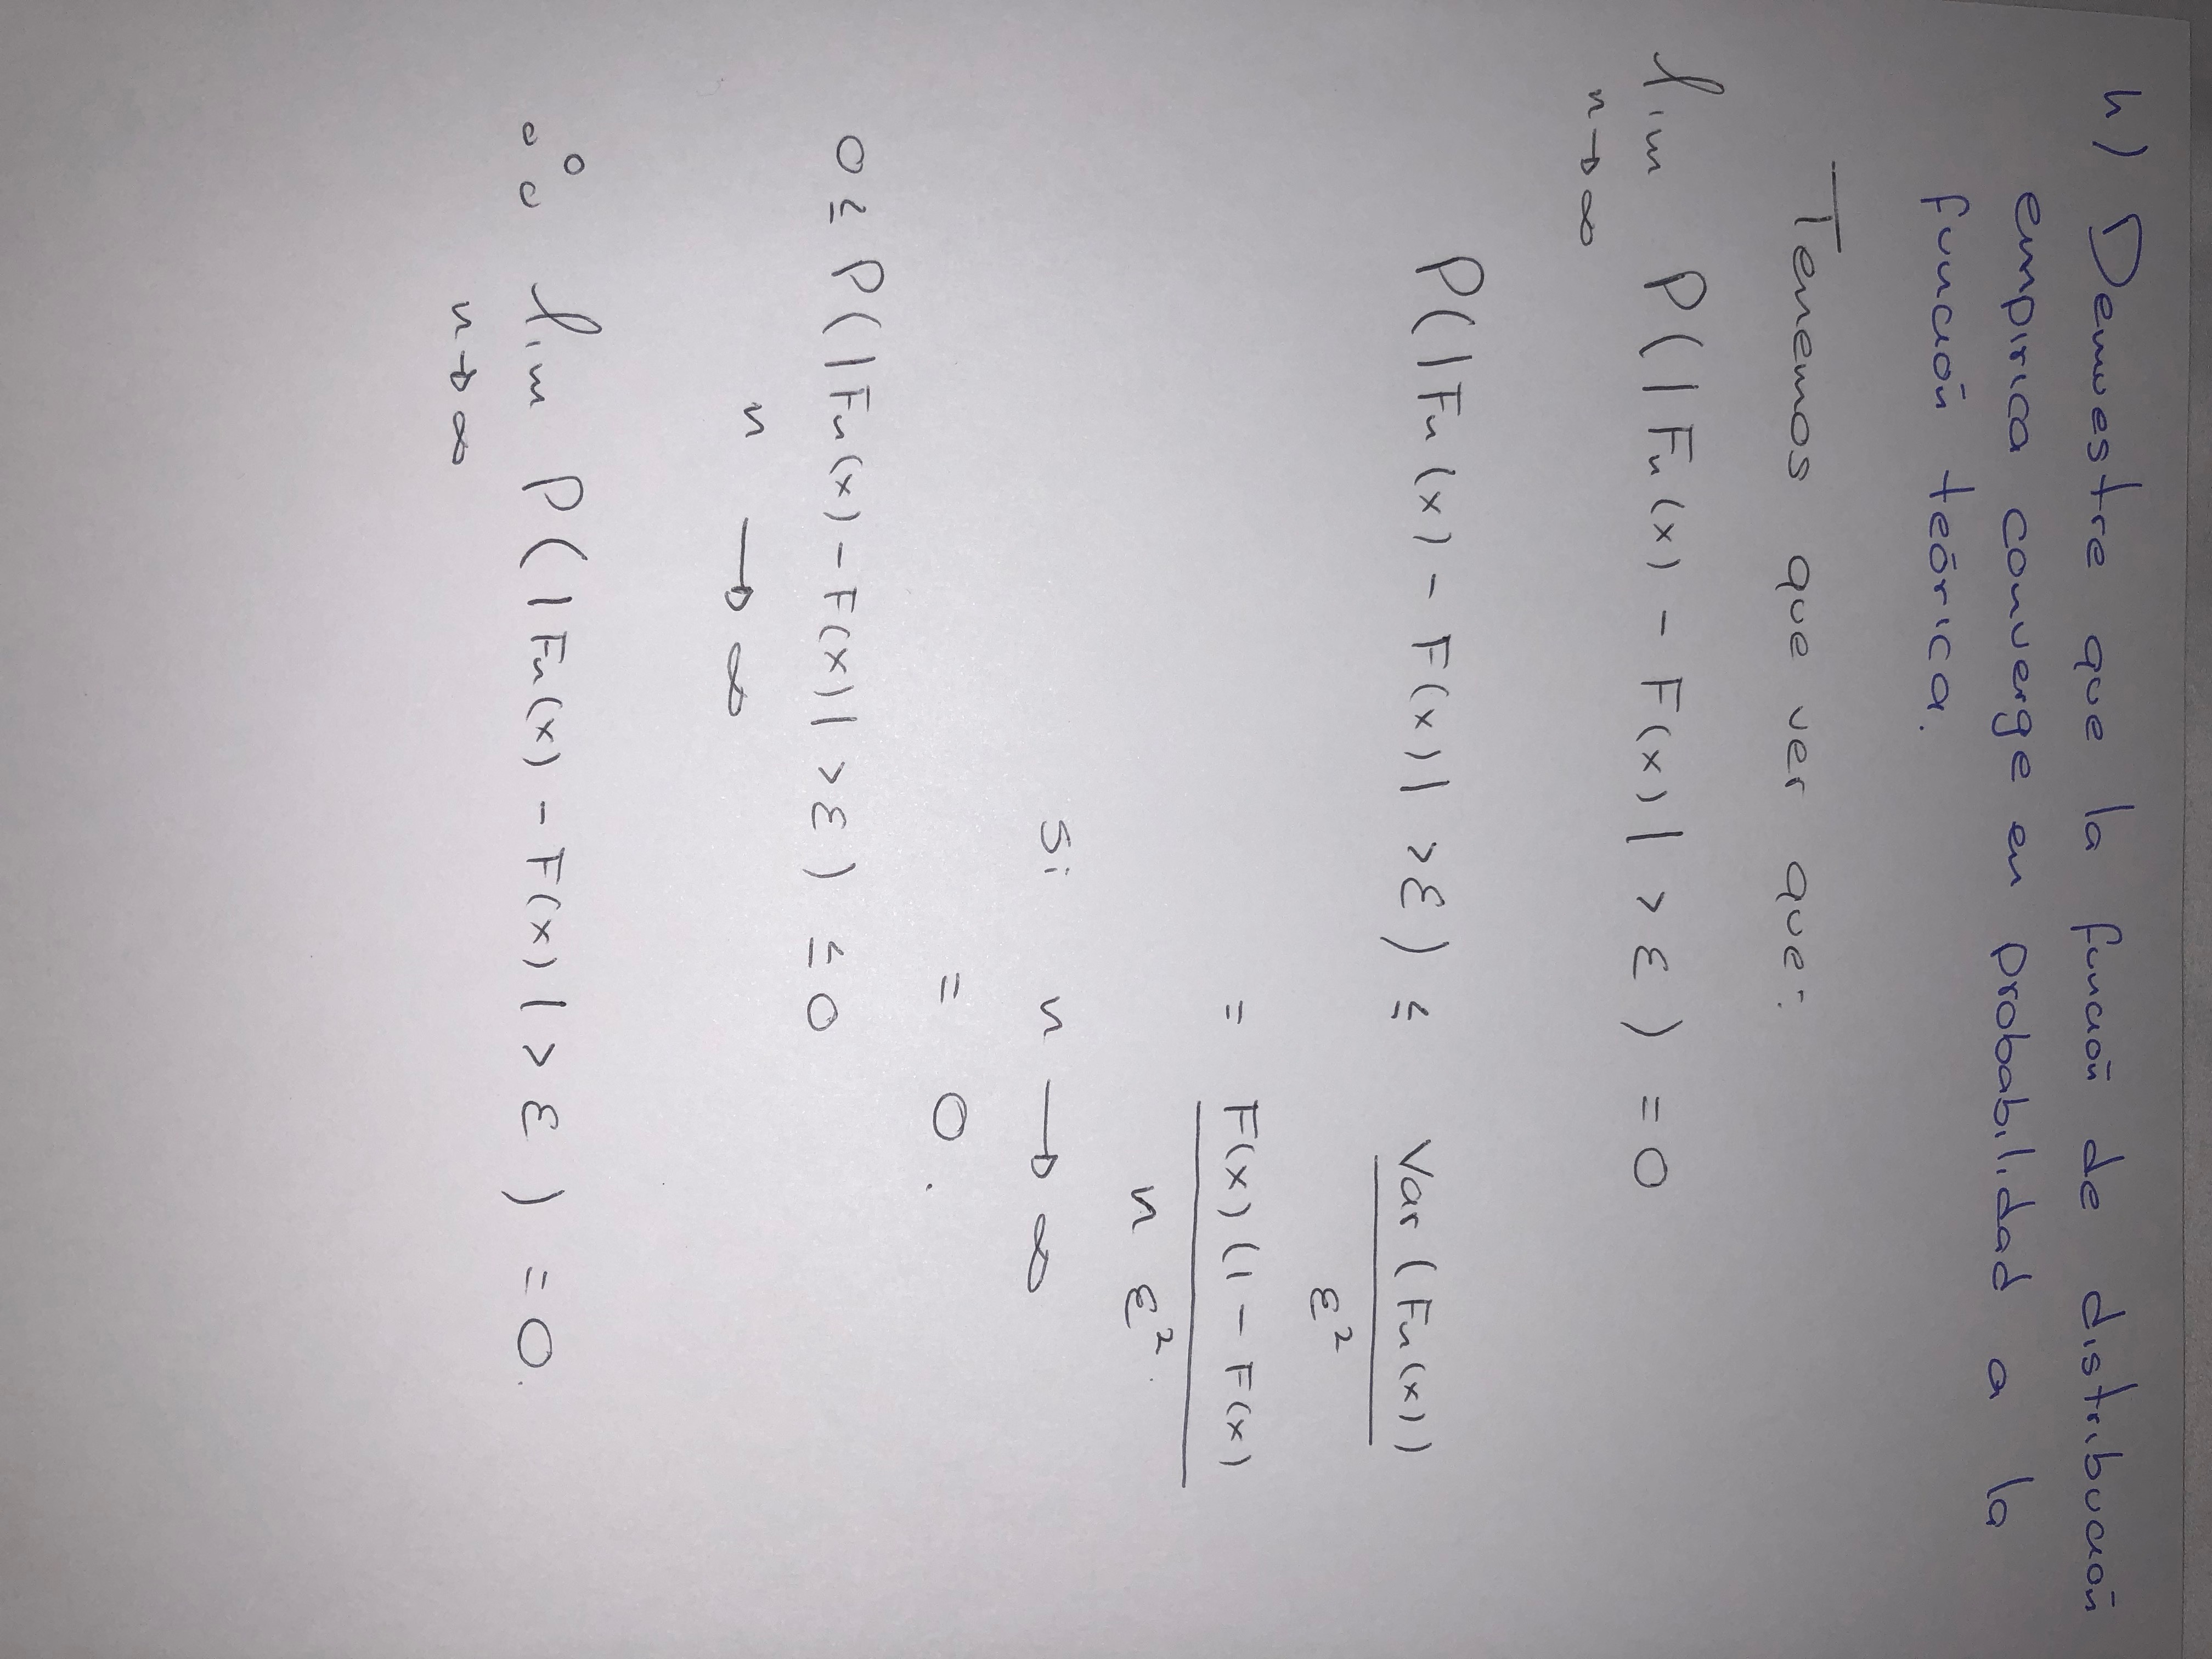 h) Demuestre que la función de distribución
empírica converge en probabilidad a la
función teórica.
Tenemos que ver que:
lim P(|Fn(x) - F(x)| > ε) = 0
n→∞
P(|Fn(x) - F(x)| > ε) ≤ Var(Fn(x))
ε²
= F(x)(1 - F(x)
n ε²
si n → ∞
= 0.
0 ≤ P(|Fn(x) - F(x)| > ε) ≤ 0
n → ∞
∴ lim P(|Fn(x) - F(x)| > ε) = 0.
n→∞